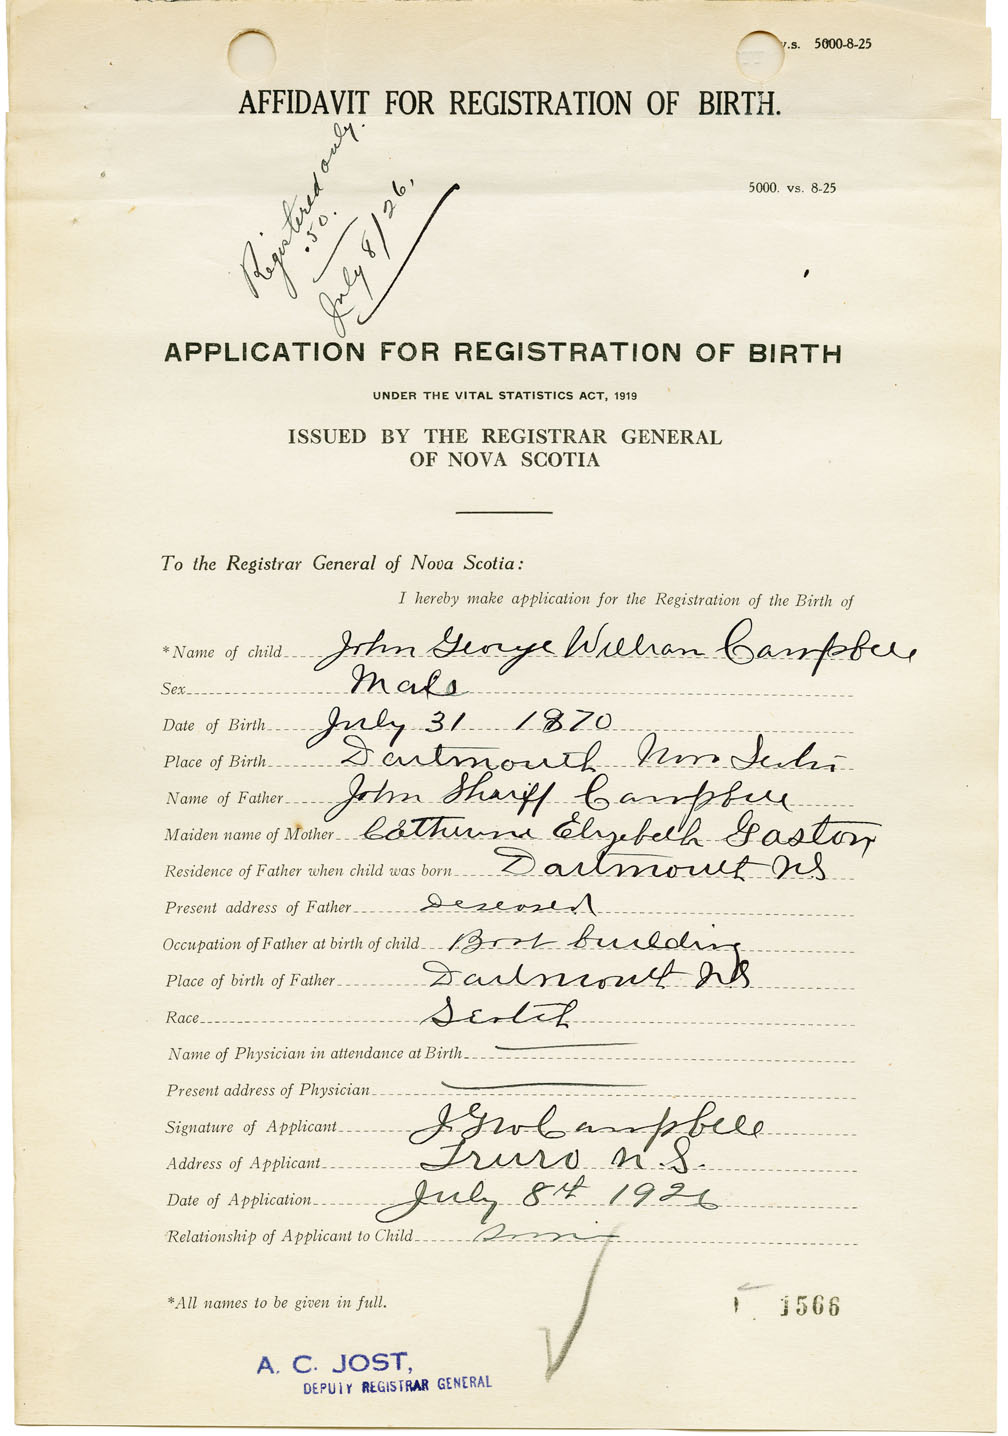 v.s. 5000-8-25
AFFIDAVIT FOR REGISTRATION OF BIRTH.
Registered only.
.50.
July 8/26.
5000. vs. 8-25
APPLICATION FOR REGISTRATION OF BIRTH
UNDER THE VITAL STATISTICS ACT, 1919
ISSUED BY THE REGISTRAR GENERAL
OF NOVA SCOTIA
To the Registrar General of Nova Scotia:
I hereby make application for the Registration of the Birth of
*Name of child John George William Campbell
Sex Male
Date of Birth July 31 1870
Place of Birth Dartmouth Nova Scotia
Name of Father John Shariff Campbell
Maiden name of Mother Catherine Elizebeth Gaston
Residence of Father when child was born Dartmouth NS
Present address of Father Deseased
Occupation of Father at birth of child Boat building
Place of birth of Father Dartmouth NS
Race Scotch
Name of Physician in attendance at Birth
Present address of Physician
Signature of Applicant J G W Campbell
Address of Applicant Truro N.S.
Date of Application July 8th 1926
Relationship of Applicant to Child
*All names to be given in full.
1566
A. C. JOST,
DEPUTY REGISTRAR GENERAL